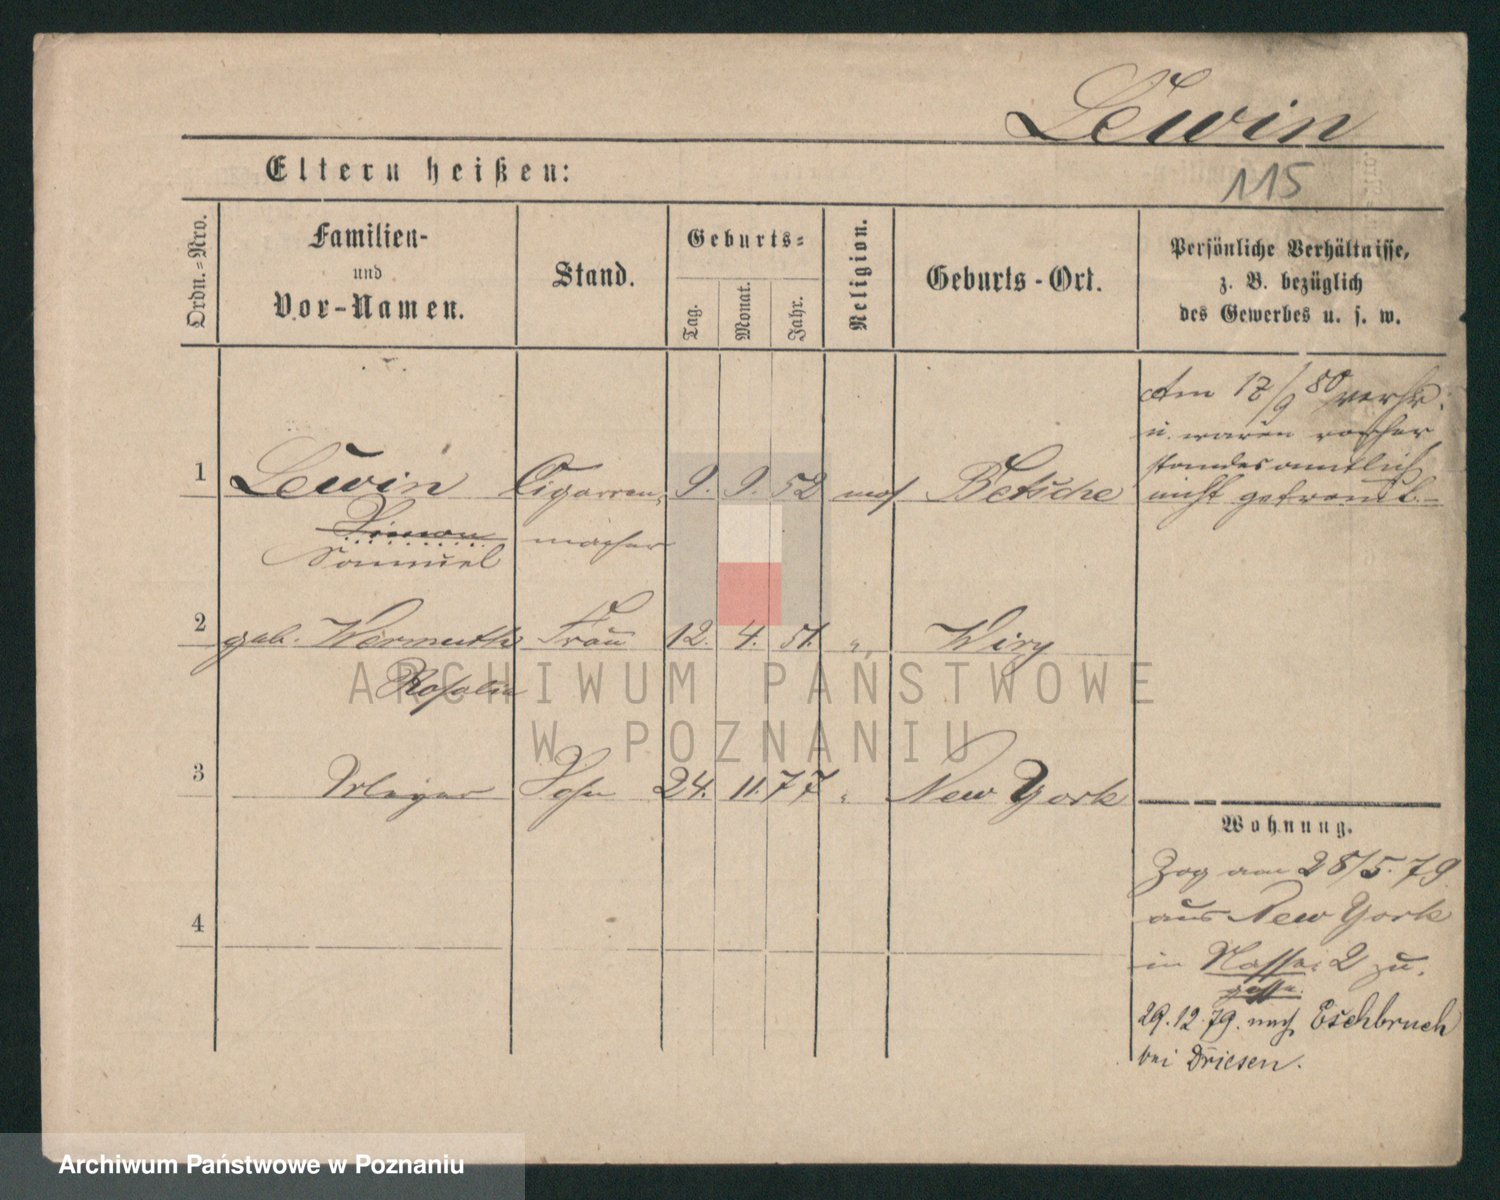 Lewin
115
Eltern heißen:
Ordn.-Nro.
Familien-
und
Vor-Namen.
Stand.
Geburts-
Tag.
Monat.
Jahr.
Religion.
Geburts-Ort.
Persönliche Verhältnisse,
z. B. bezüglich
des Gewerbes u. s. w.
Am 17/9 80 verhr.
u. waren vorher
standesamtlich
nicht getraut.
1 Lewin Cigarren- 9. 9. 52 mos Betsche
Simon macher
Samuel
2 geb. Wermuth Frau 12. 4. 51. " Wiry
Rosalie
3 Meyer Sohn 24. 11. 77 " New York
4
Wohnung.
Zog am 28/5. 79
aus New York
in 2 zu.
29.12.79. nach Eschbruch
bei Driesen.
ARCHIWUM PAŃSTWOWE
W POZNANIU
Archiwum Państwowe w Poznaniu